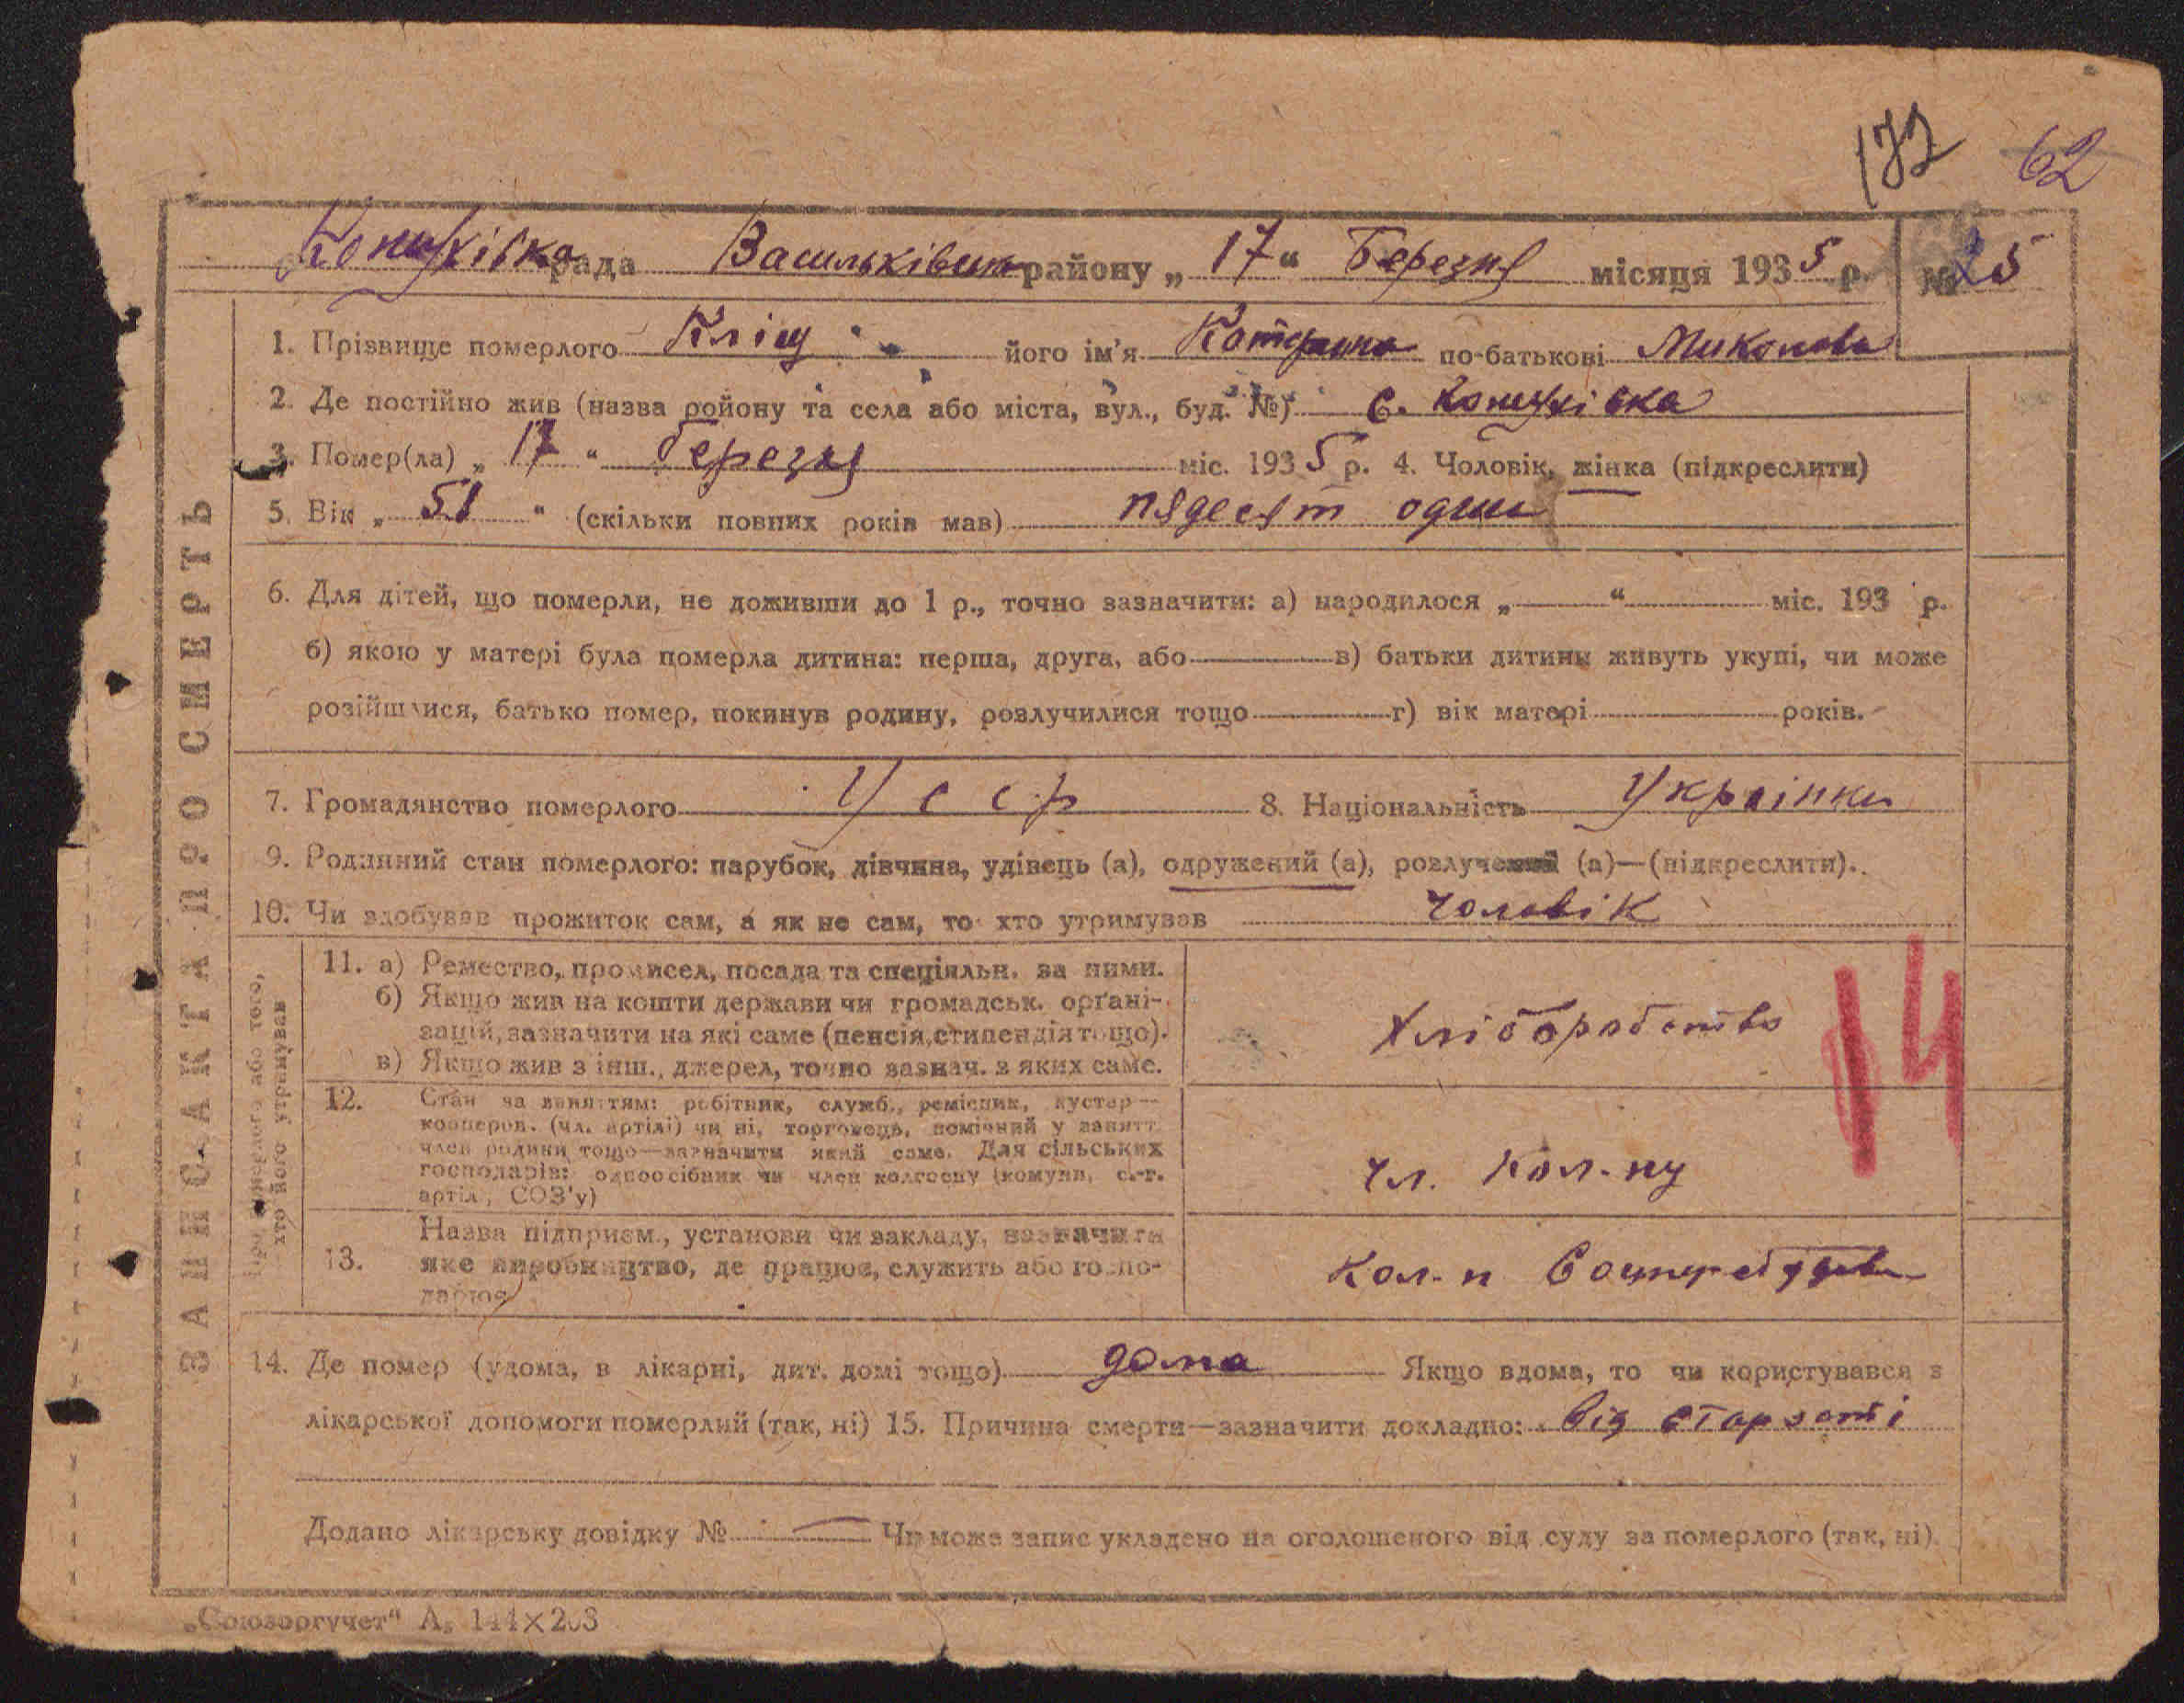 172 62
Кощіївка рада Васильківськ району „ 17 “ Березня місяця 1935 р. № 25
1. Прізвище померлого Кліщ його ім'я Катерина по-батькові Миколова
2. Де постійно жив (назва ройону та села або міста, вул., буд. №) с.
3. Помер(ла) „ 17 “ березня міс. 1935 р. 4. Чоловік, жінка (підкреслити)
5. Вік „ 51 “ (скільки повних років мав) пядесят один
6. Для дітей, що померли, не доживши до 1 р., точно зазначити: а) народилося „ — “ міс. 193 р.
б) якою у матері була померла дитина: перша, друга, або — в) батьки дитини живуть укупі, чи може
розійшлися, батько помер, покинув родину, розлучилися тощо — г) вік матері — років.
7. Громадянство померлого УССР 8. Національність Українка
9. Родинний стан померлого: парубок, дівчина, удівець (а), одружений (а), розлучений (а)—(підкреслити).
10. Чи здобував прожиток сам, а як не сам, то хто утримував чоловік
11. а) Ремество, промисел, посада та спеціяльн. за ними.
б) Якщо жив на кошти держави чи громадськ. орґані-
зацій, зазначити на які саме (пенсія, стипендія тощо).
в) Якщо жив з інш., джерел, точно зазнач. з яких саме.
Хліборобство
14
12. Стан за заняттям: робітник, служб., ремісник, кустар—
кооперов. (чл. артілі) чи ні, торговець, помічний у занятт.
член родини тощо—зазначити який саме. Для сільських
господарів: одноосібник чи член колгоспу (комуни, с.-г.
артіл, СОЗ'у)
чл. кол-пу
13. Назва підприєм., установи чи закладу, зазначити
яке виробництво, де працює, служить або госпо-
дарює
Кол-п
14. Де помер (удома, в лікарні, дит. домі тощо) дома Якщо вдома, то чи користувався з
лікарської допомоги померлий (так, ні) 15. Причина смерти—зазначити докладно: від старости
Додано лікарську довідку № — Чи може запис укладено на оголошеного від суду за померлого (так, ні).
„Союзоргучет“ А₅ 144×203
ЗАПИС АКТА ПРО СМЕРТЬ
хто його утримував